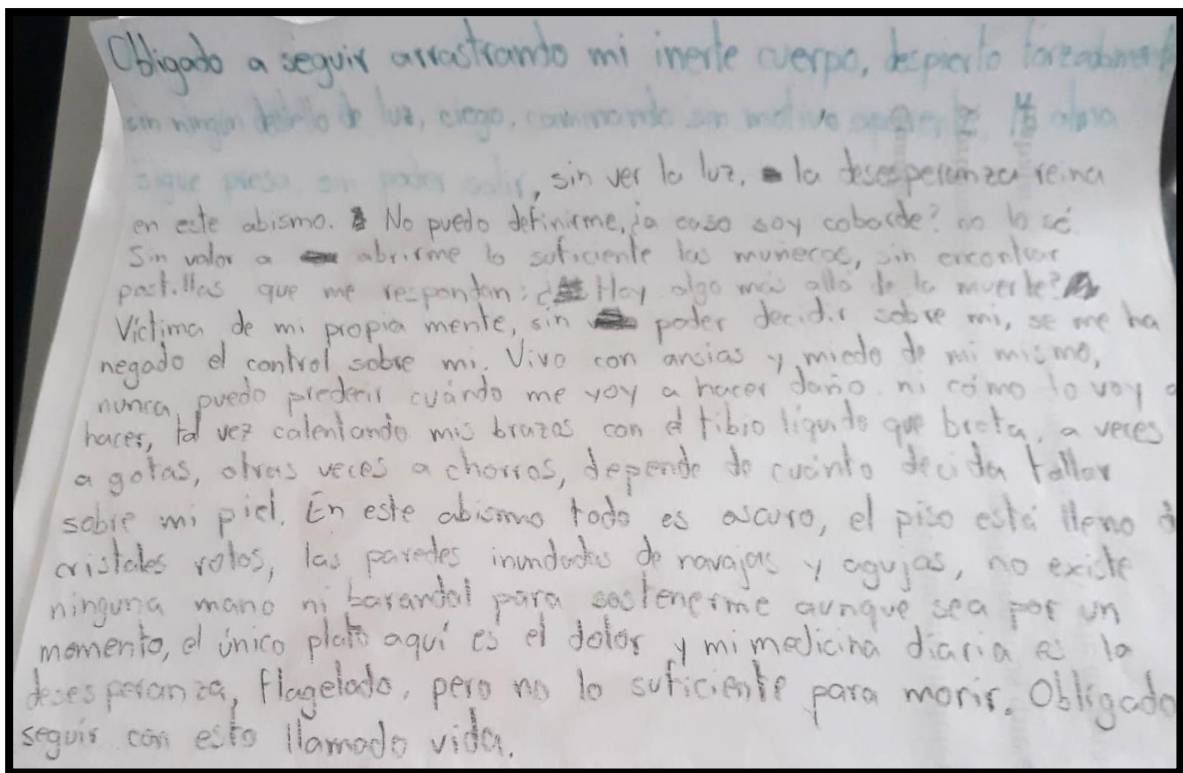 Obligado a seguir arrastrando mi inerte cuerpo, despierto forzadamente
sin ningún destello de luz, ciego, caminando sin motivo aparente. Mi alma
sigue presa, sin poder salir, sin ver la luz, la desesperanza reina
en este abismo. No puedo definirme, ¿a caso soy coborde? no lo sé.
Sin valor a abrirme lo suficiente las muñecas, sin encontrar
pastillas que me respondan: ¿Hay algo más allá de la muerte?
Víctima de mi propia mente, sin poder decidir sobre mi, se me ha
negado el control sobre mi. Vivo con ansias y miedo de mi mismo,
nunca puedo predecir cuándo me voy a hacer daño ni cómo lo voy a
hacer, tal vez calentando mis brazos con el tibio líquido que brota, a veces
a gotas, otras veces a chorros, depende de cuánto decida tallar
sobre mi piel. En este abismo todo es oscuro, el piso está lleno d
cristales rotos, las paredes inundadas de navajas y agujas, no existe
ninguna mano ni barandal para sostenerme aunque sea por un
momento, el único plato aquí es el dolor y mi medicina diaria es la
desesperanza, flagelado, pero no lo suficiente para morir. Obligado
seguir con esto llamado vida.